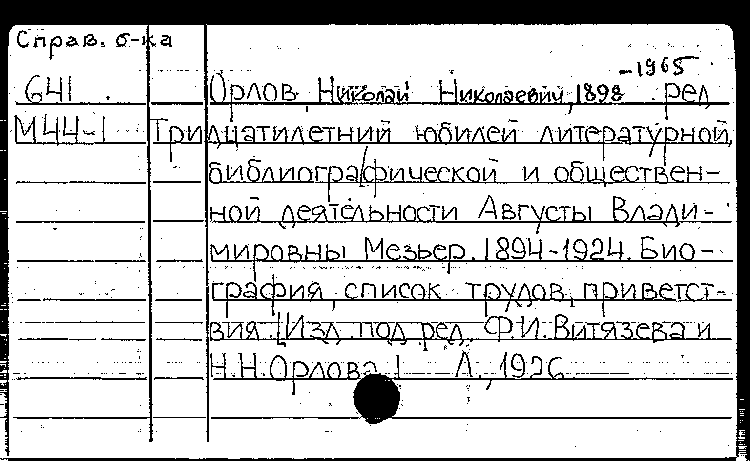 Справ. б-ка
-1965
641 Орлов, Николай Николаевич, 1898 ред
М44-1 Тридцатилетний юбилей литературной,
библиографической и обществен-
ной деятельности Августы Влади-
мировны Мезьер. 1894-1924. Био-
графия, список трудов, приветст-
вия. [Изд. под ред. Ф.И. Витязева и
Н.Н. Орлова] Л., 1926.